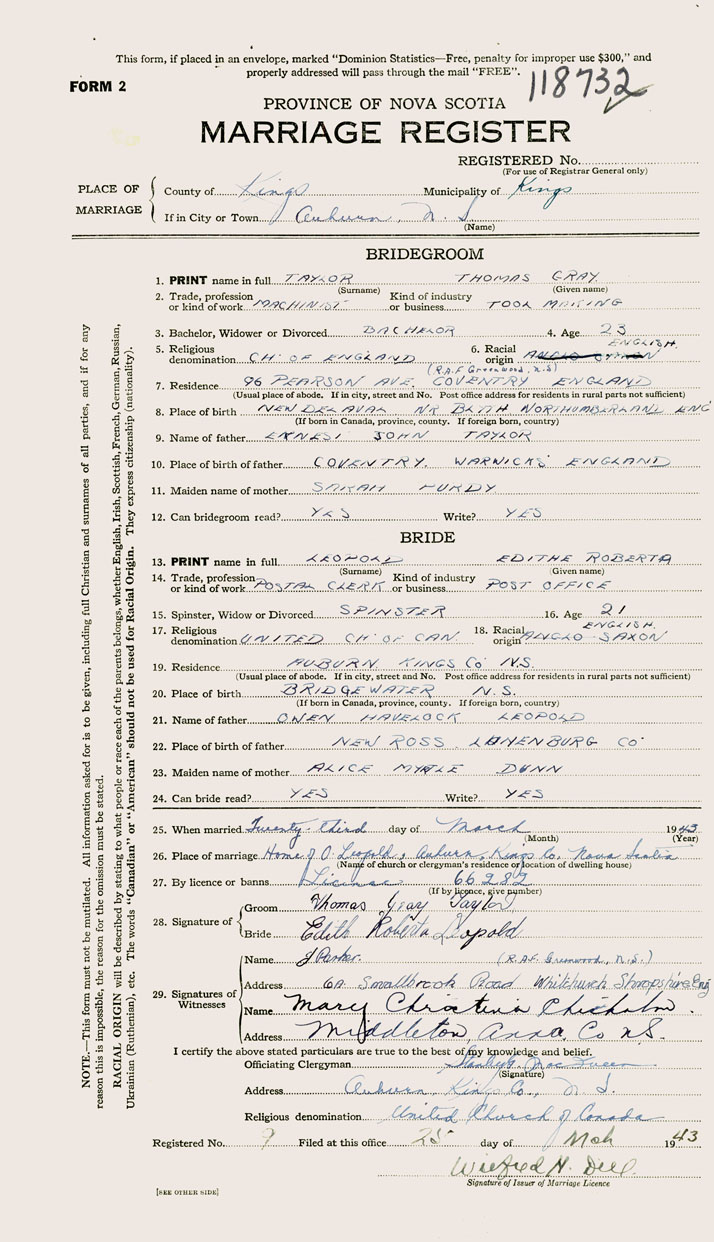 This form, if placed in an envelope, marked "Dominion Statistics—Free, penalty for improper use $300," and
properly addressed will pass through the mail "FREE".
118732
FORM 2
PROVINCE OF NOVA SCOTIA
MARRIAGE REGISTER
REGISTERED No.
(For use of Registrar General only)
PLACE OF MARRIAGE
County of Kings Municipality of Kings
If in City or Town Auburn, N.S
(Name)
BRIDEGROOM
1. PRINT name in full TAYLOR THOMAS GRAY
(Surname) (Given name)
2. Trade, profession or kind of work MACHINIST Kind of industry or business TOOL MAKING
3. Bachelor, Widower or Divorced BACHELOR 4. Age 23
5. Religious denomination CH' OF ENGLAND 6. Racial origin ANGLO SAXON ENGLISH.
(R.A.F Greenwood, N.S)
7. Residence 96 PEARSON AVE. COVENTRY ENGLAND
(Usual place of abode. If in city, street and No. Post office address for residents in rural parts not sufficient)
8. Place of birth NEW DELAVAL NR BLYTH NORTHUMBERLAND ENG
(If born in Canada, province, county. If foreign born, country)
9. Name of father ERNEST JOHN TAYLOR
10. Place of birth of father COVENTRY. WARWICKS' ENGLAND
11. Maiden name of mother SARAH HURDY
12. Can bridegroom read? YES Write? YES
BRIDE
13. PRINT name in full LEOPOLD EDITHE ROBERTA
(Surname) (Given name)
14. Trade, profession or kind of work POSTAL CLERK Kind of industry or business POST OFFICE
15. Spinster, Widow or Divorced SPINSTER 16. Age 21
17. Religious denomination UNITED CH' OF CAN 18. Racial origin ANGLO-SAXON ENGLISH.
19. Residence AUBURN KINGS Co' N.S.
(Usual place of abode. If in city, street and No. Post office address for residents in rural parts not sufficient)
20. Place of birth BRIDGEWATER N.S.
(If born in Canada, province, county. If foreign born, country)
21. Name of father OWEN HAVELOCK LEOPOLD
22. Place of birth of father NEW ROSS. LUNENBURG CO'
23. Maiden name of mother ALICE MYRTLE DUNN
24. Can bride read? YES Write? YES
25. When married Twenty-third day of March 1943
(Month) (Year)
26. Place of marriage Home of O. Leopold, Auburn, Kings Co, Nova Scotia
(Name of church or clergyman's residence or location of dwelling house)
27. By licence or banns License 66282
(If by licence, give number)
28. Signature of
Groom Thomas Gray Taylor
Bride Edith Roberta Leopold
29. Signatures of Witnesses
Name J Parker. (R.A.F. Greenwood, N.S.)
Address 6A Smallbrook Road Whitchurch Shropshire Eng
Name Mary Christina Chisholm.
Address Middleton, Anna. Co N.S.
I certify the above stated particulars are true to the best of my knowledge and belief.
Officiating Clergyman Stanley G. MacQueen
(Signature)
Address Auburn, Kings Co., N.S.
Religious denomination United Church of Canada
Registered No. 9 Filed at this office 25 day of Mch 1943
Wilfred H. Dill
Signature of Issuer of Marriage Licence
[SEE OTHER SIDE]
NOTE.—This form must not be mutilated. All information asked for is to be given, including full Christian and surnames of all parties, and if for any
reason this is impossible, the reason for the omission must be stated.
RACIAL ORIGIN will be described by stating to what people or race each of the parents belongs, whether English, Irish, Scottish, French, German, Russian,
Ukrainian (Ruthenian), etc. The words "Canadian" or "American" should not be used for Racial Origin. They express citizenship (nationality).